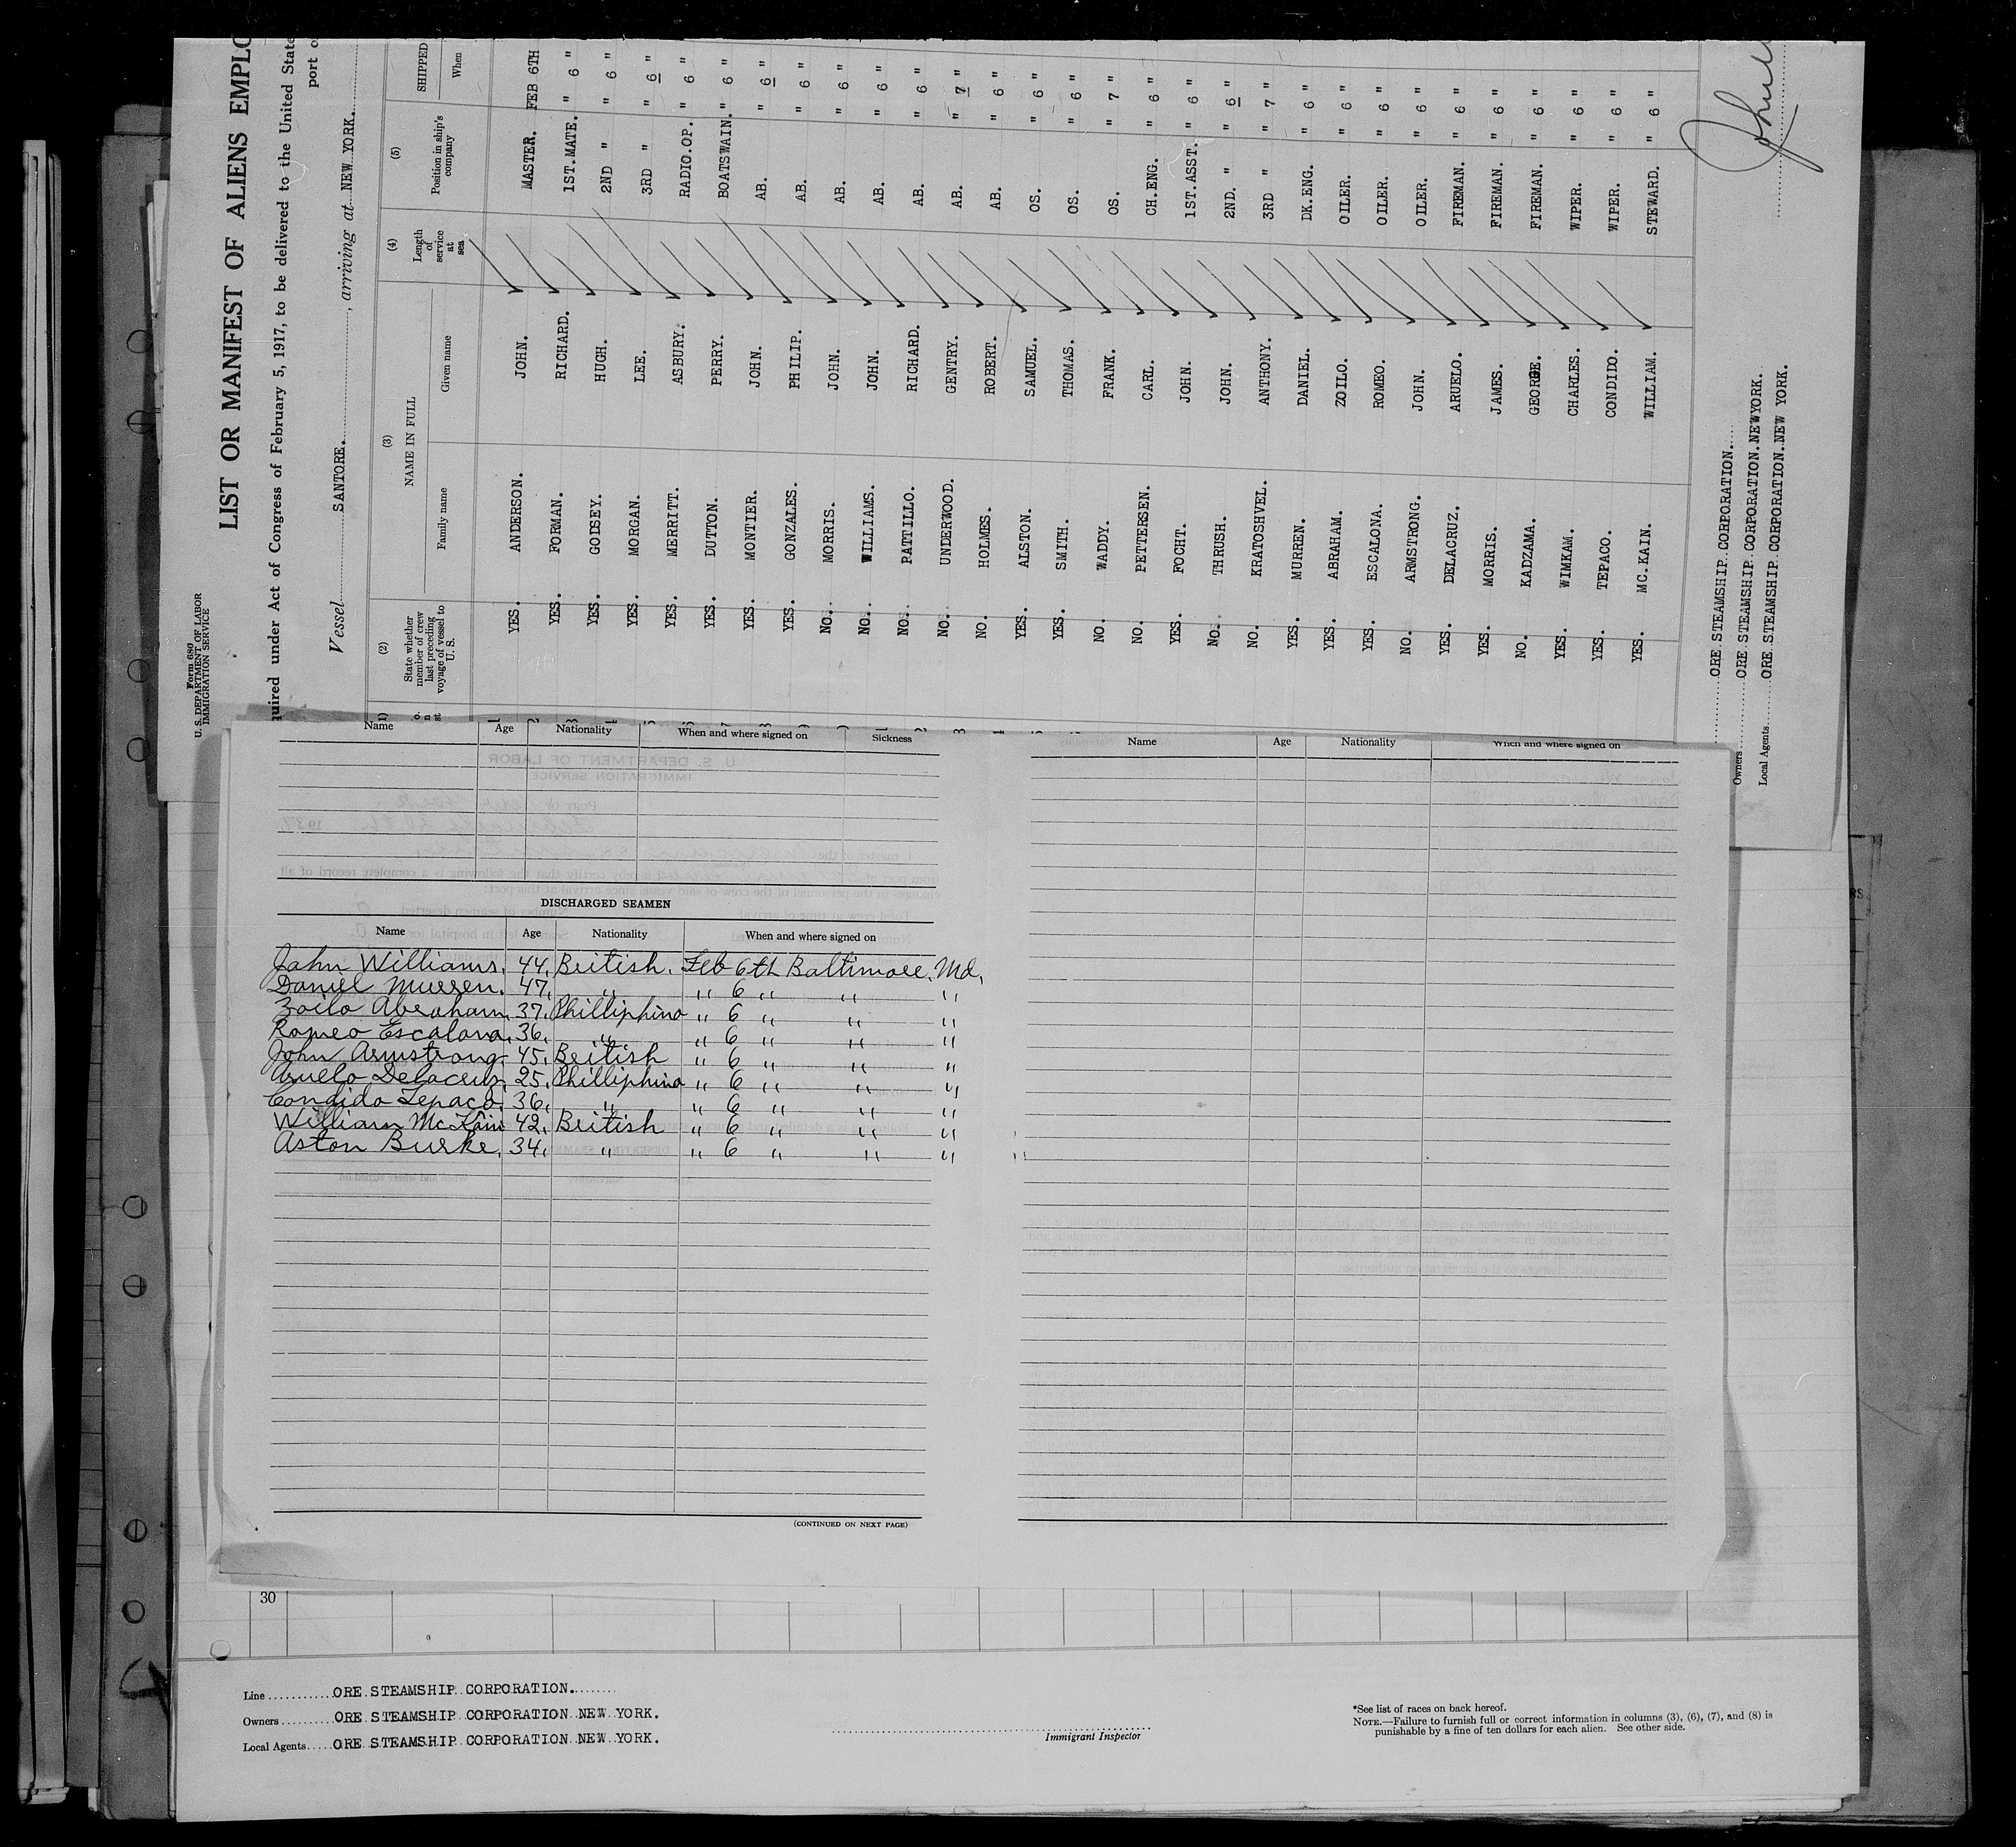 Form 680
U. S. DEPARTMENT OF LABOR
IMMIGRATION SERVICE
LIST OR MANIFEST OF ALIENS EMPLO
quired under Act of Congress of February 5, 1917, to be delivered to the United State
port o
Vessel SANTORE. , arriving at NEW YORK.
(2) State whether member of crew last preceding voyage of vessel to U. S. (3) NAME IN FULL Family name Given name (4) Length of service at sea (5) Position in ship's company SHIPPED When
YES. ANDERSON. JOHN. MASTER. FEB 6TH
YES. FORMAN. RICHARD. 1ST.MATE. " 6 "
YES. GODSEY. HUGH. 2ND " " 6 "
YES. MORGAN. LEE. 3RD " " 6 "
YES. MERRITT. ASBURY. RADIO.OP. " 6 "
YES. DUTTON. PERRY. BOATSWAIN. " 6 "
YES. MONTIER. JOHN. AB. " 6 "
YES. GONZALES. PHILIP. AB. " 6 "
NO. MORRIS. JOHN. AB. " 6 "
NO. WILLIAMS. JOHN. AB. " 6 "
NO. PATTILLO. RICHARD. AB. " 6 "
NO. UNDERWOOD. GENTRY. AB. " 7 "
NO. HOLMES. ROBERT. AB. " 6 "
YES. ALSTON. SAMUEL. OS. " 6 "
YES. SMITH. THOMAS. OS. " 6 "
NO. WADDY. FRANK. OS. " 7 "
NO. PETTERSEN. CARL. CH.ENG. " 6 "
YES. FOCHT. JOHN. 1ST.ASST. " 6 "
NO. THRUSH. JOHN. 2ND. " " 6 "
NO. KRATOSHVEL. ANTHONY. 3RD " " 7 "
YES. MURREN. DANIEL. DK.ENG. " 6 "
YES. ABRAHAM. ZOILO. OILER. " 6 "
YES. ESCALONA. ROMEO. OILER. " 6 "
NO. ARMSTRONG. JOHN. OILER. " 6 "
YES. DELACRUZ. ARUELO. FIREMAN. " 6 "
YES. MORRIS. JAMES. FIREMAN. " 6 "
NO. KADZAMA. GEORGE. FIREMAN. " 6 "
YES. WIMKAM. CHARLES. WIPER. " 6 "
YES. TEPACO. CONDIDO. WIPER. " 6 "
YES. MC.KAIN. WILLIAM. STEWARD. " 6 "
ORE STEAMSHIP CORPORATION.
Owners ORE STEAMSHIP CORPORATION NEWYORK.
Local Agents ORE STEAMSHIP CORPORATION NEW YORK.
John
Name Age Nationality When and where signed on Sickness
DISCHARGED SEAMEN
Name Age Nationality When and where signed on
John Williams. 44. British. Feb 6th Baltimore. Md.
Daniel Murren. 47. " " 6 " " "
Zoilo Abraham. 37. Philliphino " 6 " " "
Romeo Escalona. 36. " " 6 " " "
John Armstrong 45. British " 6 " " "
Aruelo Delacruz. 25. Philliphino " 6 " " "
Condido Tepaco. 36. " " 6 " " "
William McKain 42. British " 6 " " "
Aston Burke. 34. " " 6 " " " "
(CONTINUED ON NEXT PAGE)
Name Age Nationality When and where signed on
30
Line ORE STEAMSHIP CORPORATION.
Owners ORE STEAMSHIP CORPORATION NEW YORK.
Local Agents ORE STEAMSHIP CORPORATION NEW YORK.
Immigrant Inspector
*See list of races on back hereof.
NOTE.—Failure to furnish full or correct information in columns (3), (6), (7), and (8) is
punishable by a fine of ten dollars for each alien. See other side.